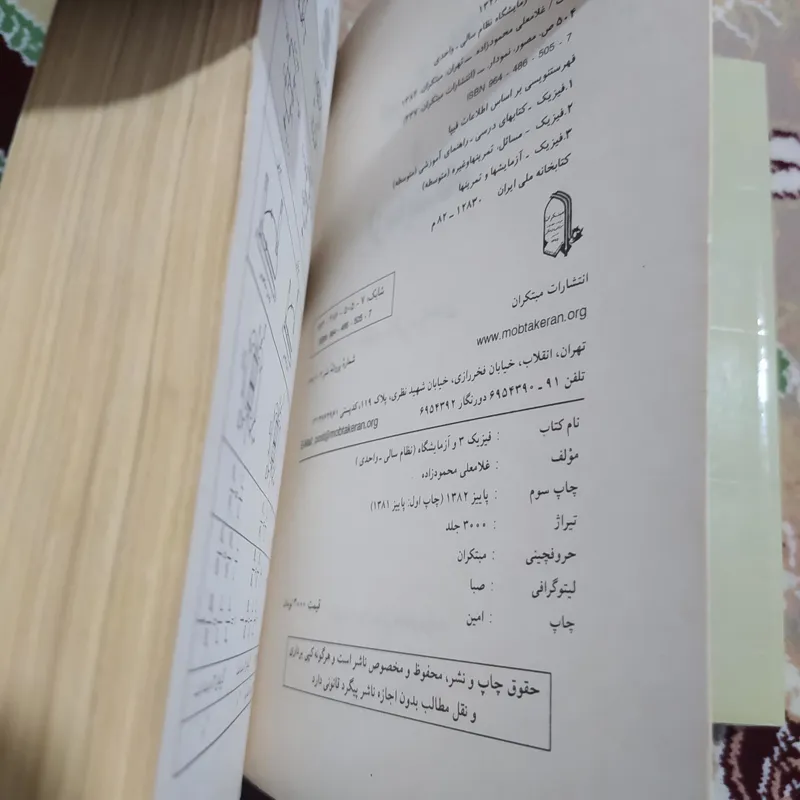 آزمایشگاه نظام سالی - واحدی
/ غلامعلی محمودزاده. — تهران: مبتکران، ۱۳۸۲
۵۰۴ ص. مصور، نمودار. — (انتشارات مبتکران؛
ISBN 964 - 486 - 505 - 7
فهرستنویسی بر اساس اطلاعات فیپا
۱.فیزیک - کتابهای درسی - راهنمای آموزشی (متوسطه)
۲.فیزیک - مسائل، تمرینها و غیره (متوسطه)
۳.فیزیک - آزمایشها و تمرینها
کتابخانه ملی ایران ۱۲۸۳۰ - ۸۲ م
انتشارات مبتکران
www.mobtakeran.org
تهران، انقلاب، خیابان فخررازی، خیابان شهید نظری، پلاک ۱۱۹، کدپستی
تلفن ۹۱ - ۶۹۵۴۳۹۰ دورنگار ۶۹۵۴۳۹۲
@mobtakeran.org
شابک: ۷ - ۵۰۵ -
505 - 7
نام کتاب : فیزیک ۳ و آزمایشگاه (نظام سالی - واحدی)
مؤلف : غلامعلی محمودزاده
چاپ سوم : پاییز ۱۳۸۲ (چاپ اول: پاییز ۱۳۸۱)
تیراژ : ۳۰۰۰ جلد
حروفچینی : مبتکران
لیتوگرافی : صبا
چاپ : امین
قیمت ۳۰۰۰ تومان
حقوق چاپ و نشر، محفوظ و مخصوص ناشر است و هرگونه کپی برداری
و نقل مطالب بدون اجازه ناشر پیگرد قانونی دارد